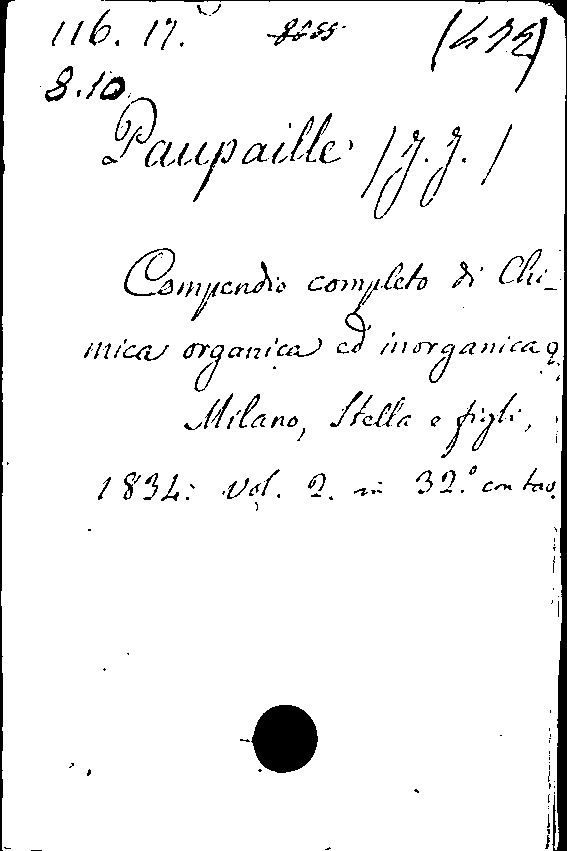 116. 17.
8.10
Paupaille (J. J.)
Compendio completo di Chi-
mica organica ed inorganica
Milano, Stella e figli,
1834: vol. 2. in 32.º con tav.